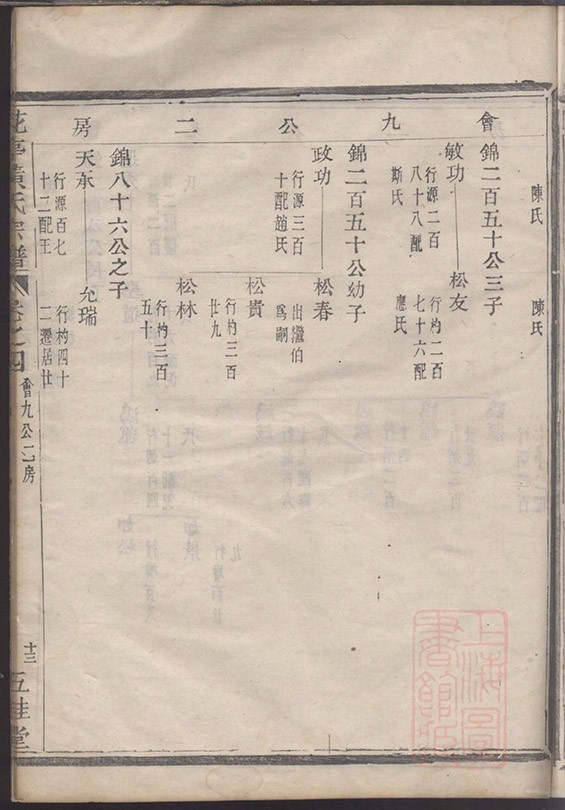 會九公二房
陳氏
陳氏
錦二百五十公三子
敏功
行源二百
八十八配
斯氏
松友
行杓二百
七十六配
應氏
錦二百五十公幼子
政功
行源三百
十配趙氏
松春
出繼伯
爲嗣
松貴
行杓三百
廿九
松林
行杓三百
五十
錦八十六公之子
天承
行源百七
十二配王
允瑞
行杓四十
二遷居廿
黃氏宗譜
卷之四
會九公二房
十三
五桂堂
上海圖書館藏